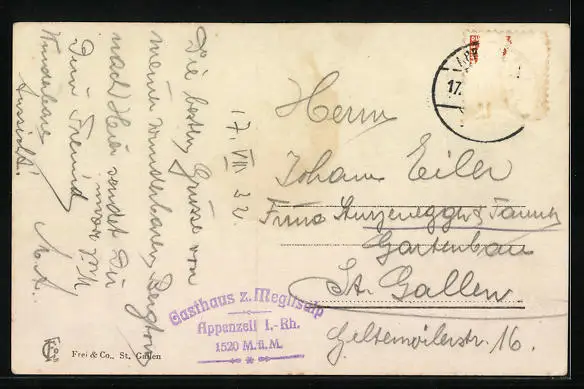 17. VIII 32.
Die besten Grüsse von
meiner wunderbaren Bergtour
nach Hier sendet Dir
Dein Freund
Wunderbare
Aussicht!
Herrn
Johann Eiler
Firma
Gartenbau
St. Gallen
16.
Gasthaus z. Meglisalp
Appenzell I.-Rh.
1520 M.ü.M.
Frei & Co., St. Gallen
17.